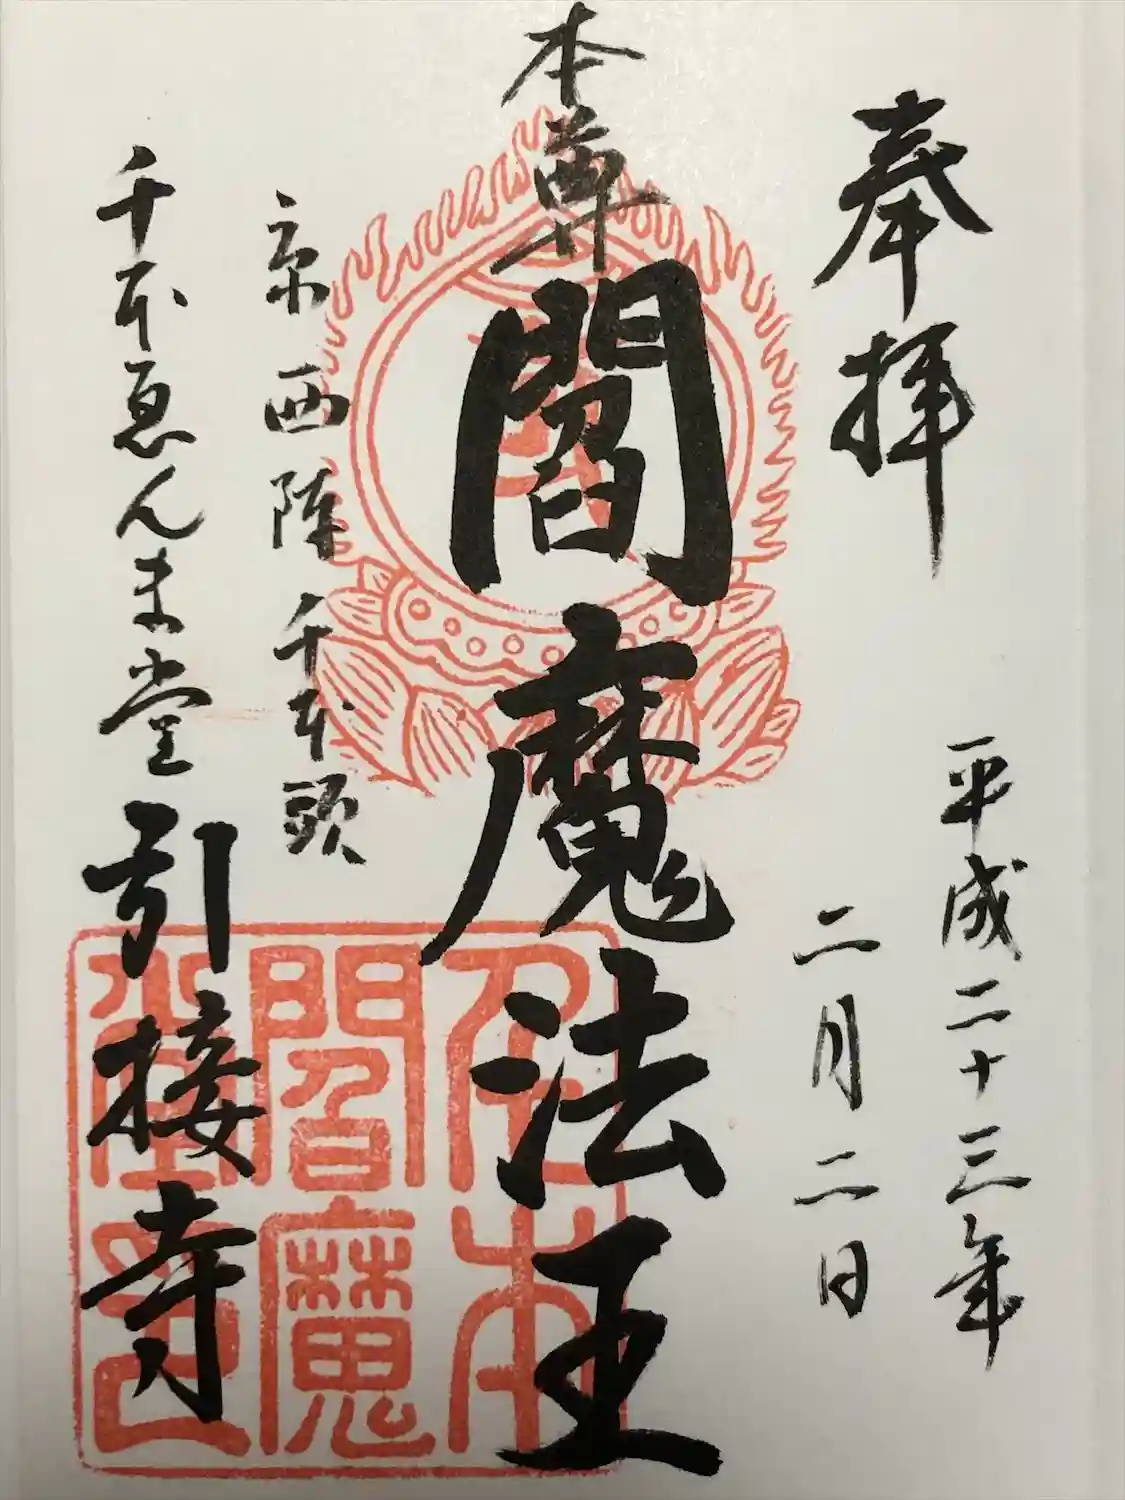 奉拝
平成二十三年
二月二日
本尊
閻魔法王
京西陣千本頭
千本ゑんま堂
引接寺
千本
閻魔
堂印